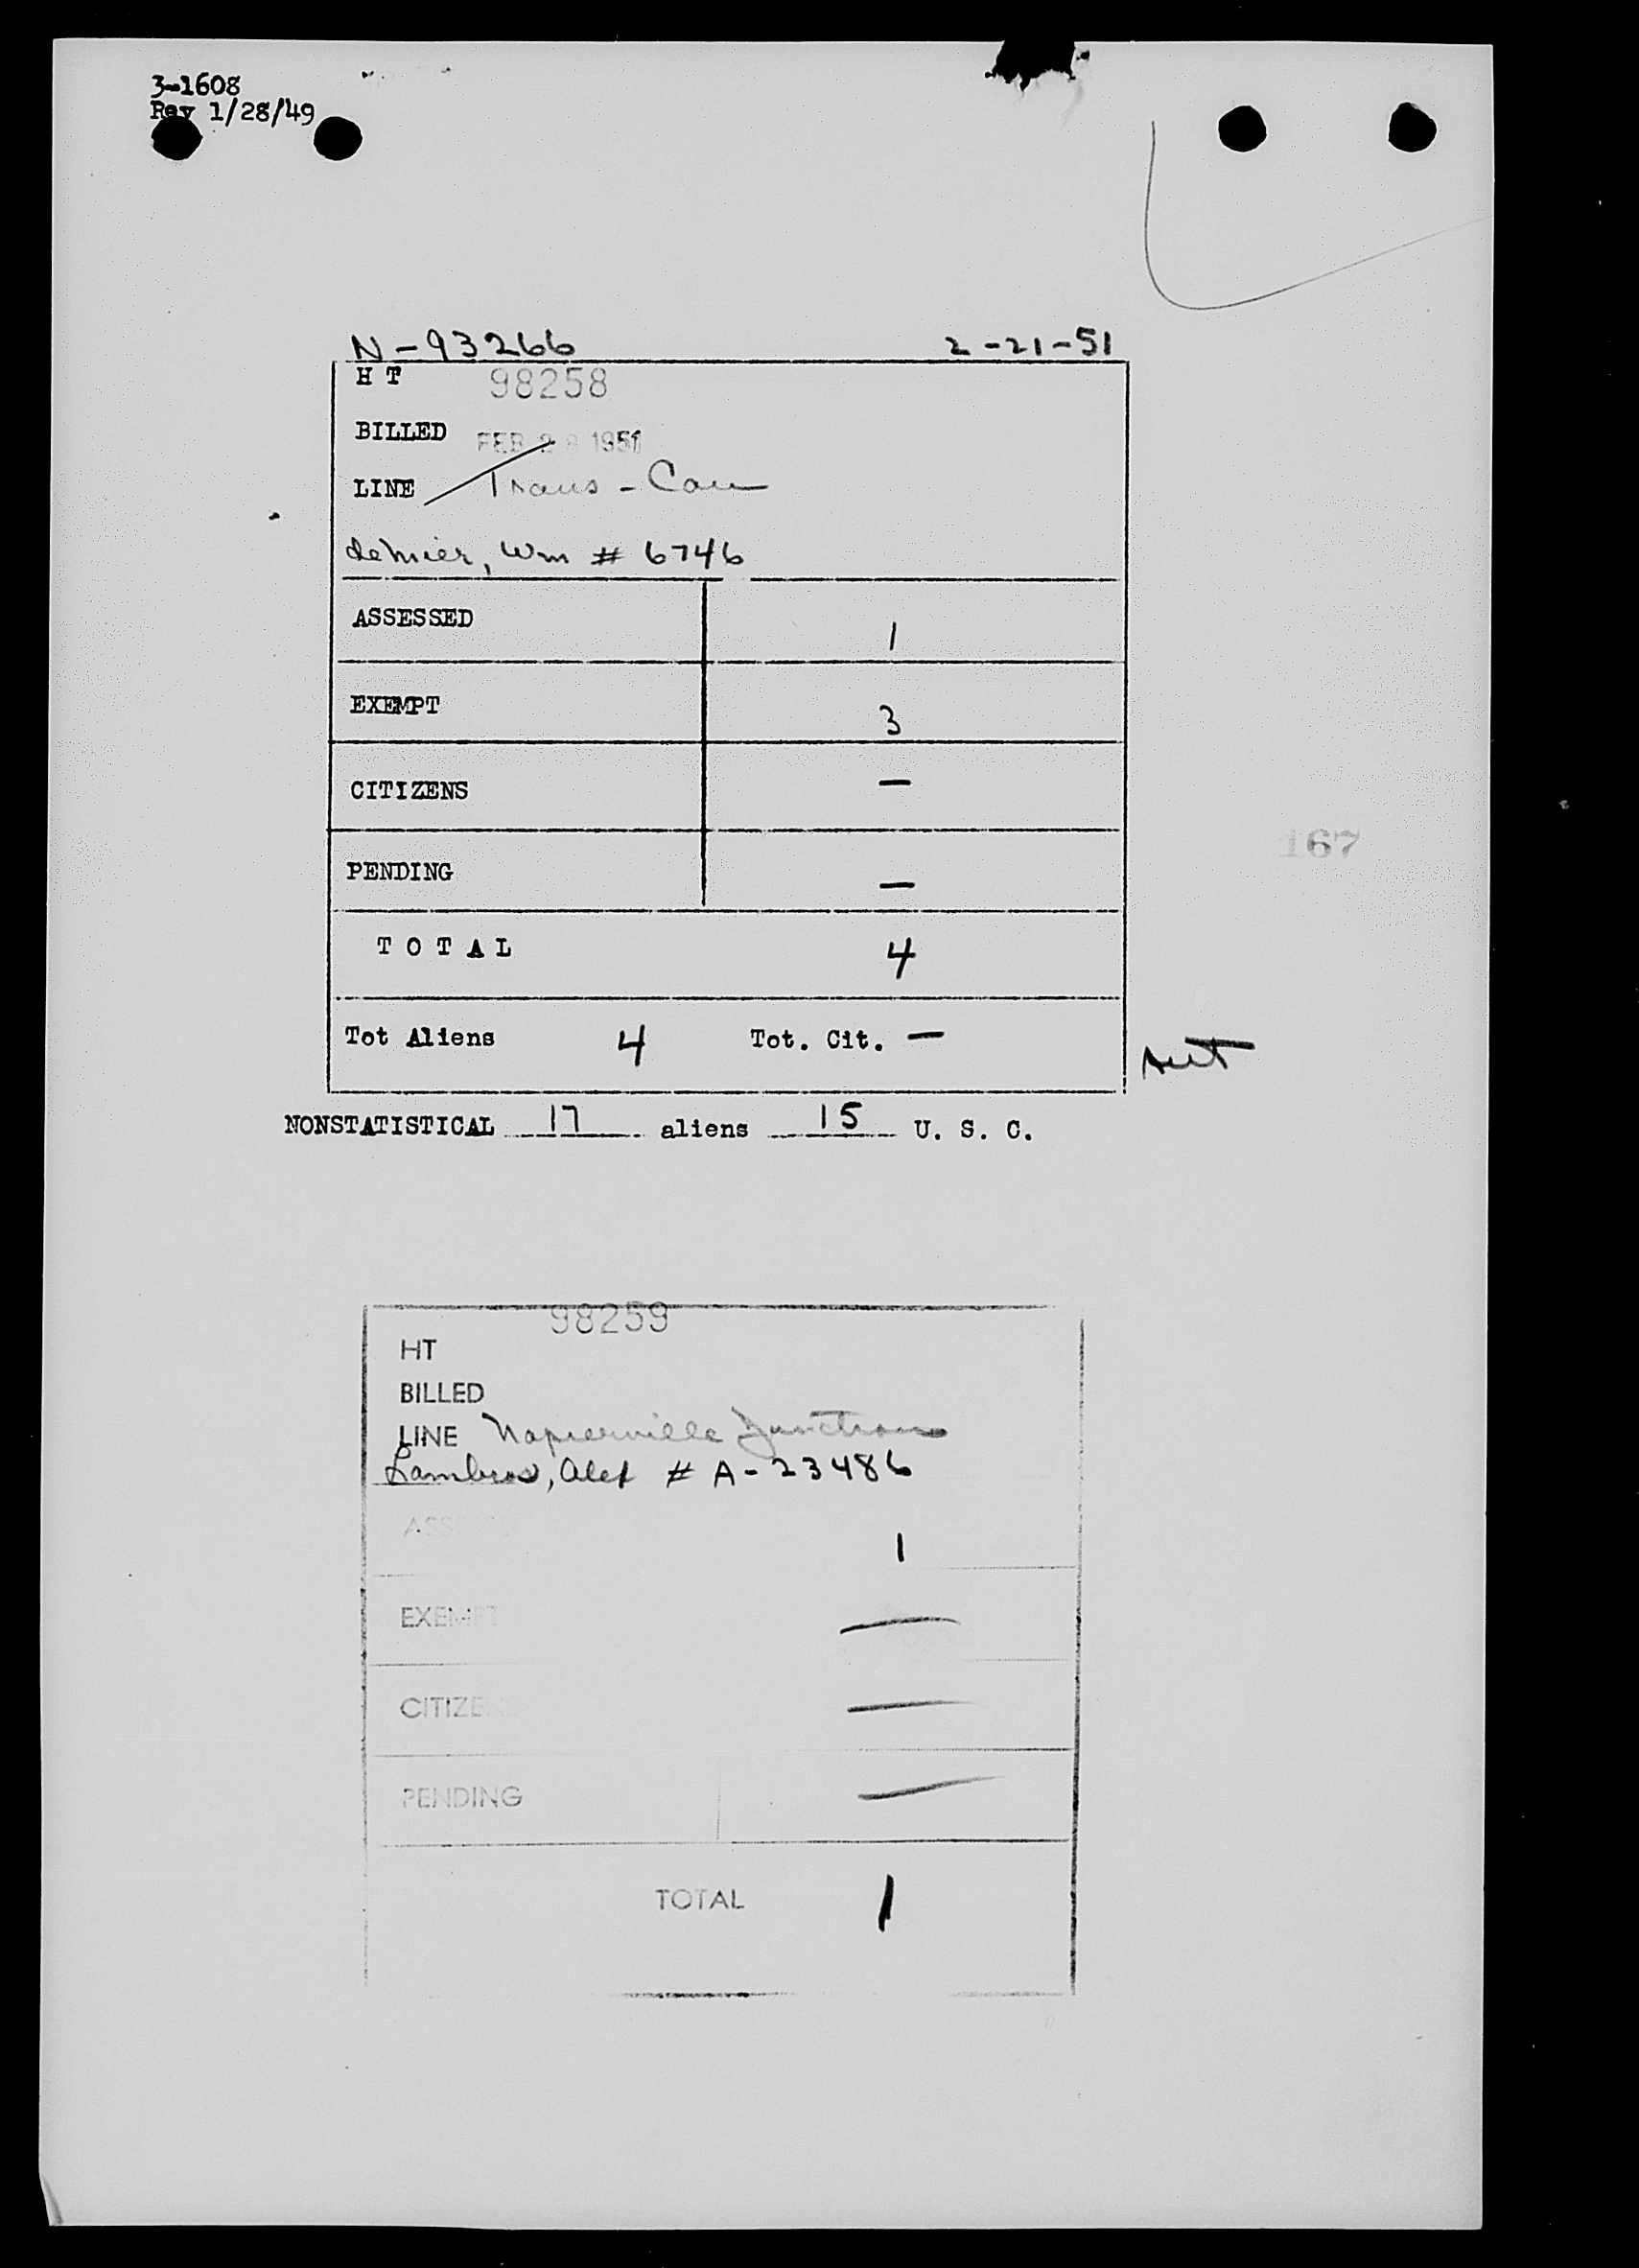 3-1608
Rev 1/28/49
N-93266 2-21-51
H T 98258
BILLED FEB 28 1951
LINE Trans-Can
Wm # 6746
ASSESSED 1
EXEMPT 3
CITIZENS —
PENDING —
167
T O T A L 4
Tot Aliens 4 Tot. Cit. —
NONSTATISTICAL 17 aliens 15 U. S. C.
98259
HT
BILLED
LINE Napierville Junction
Lambros, Alex # A-23486
1
EXEMPT —
CITIZE —
PENDING —
TOTAL 1